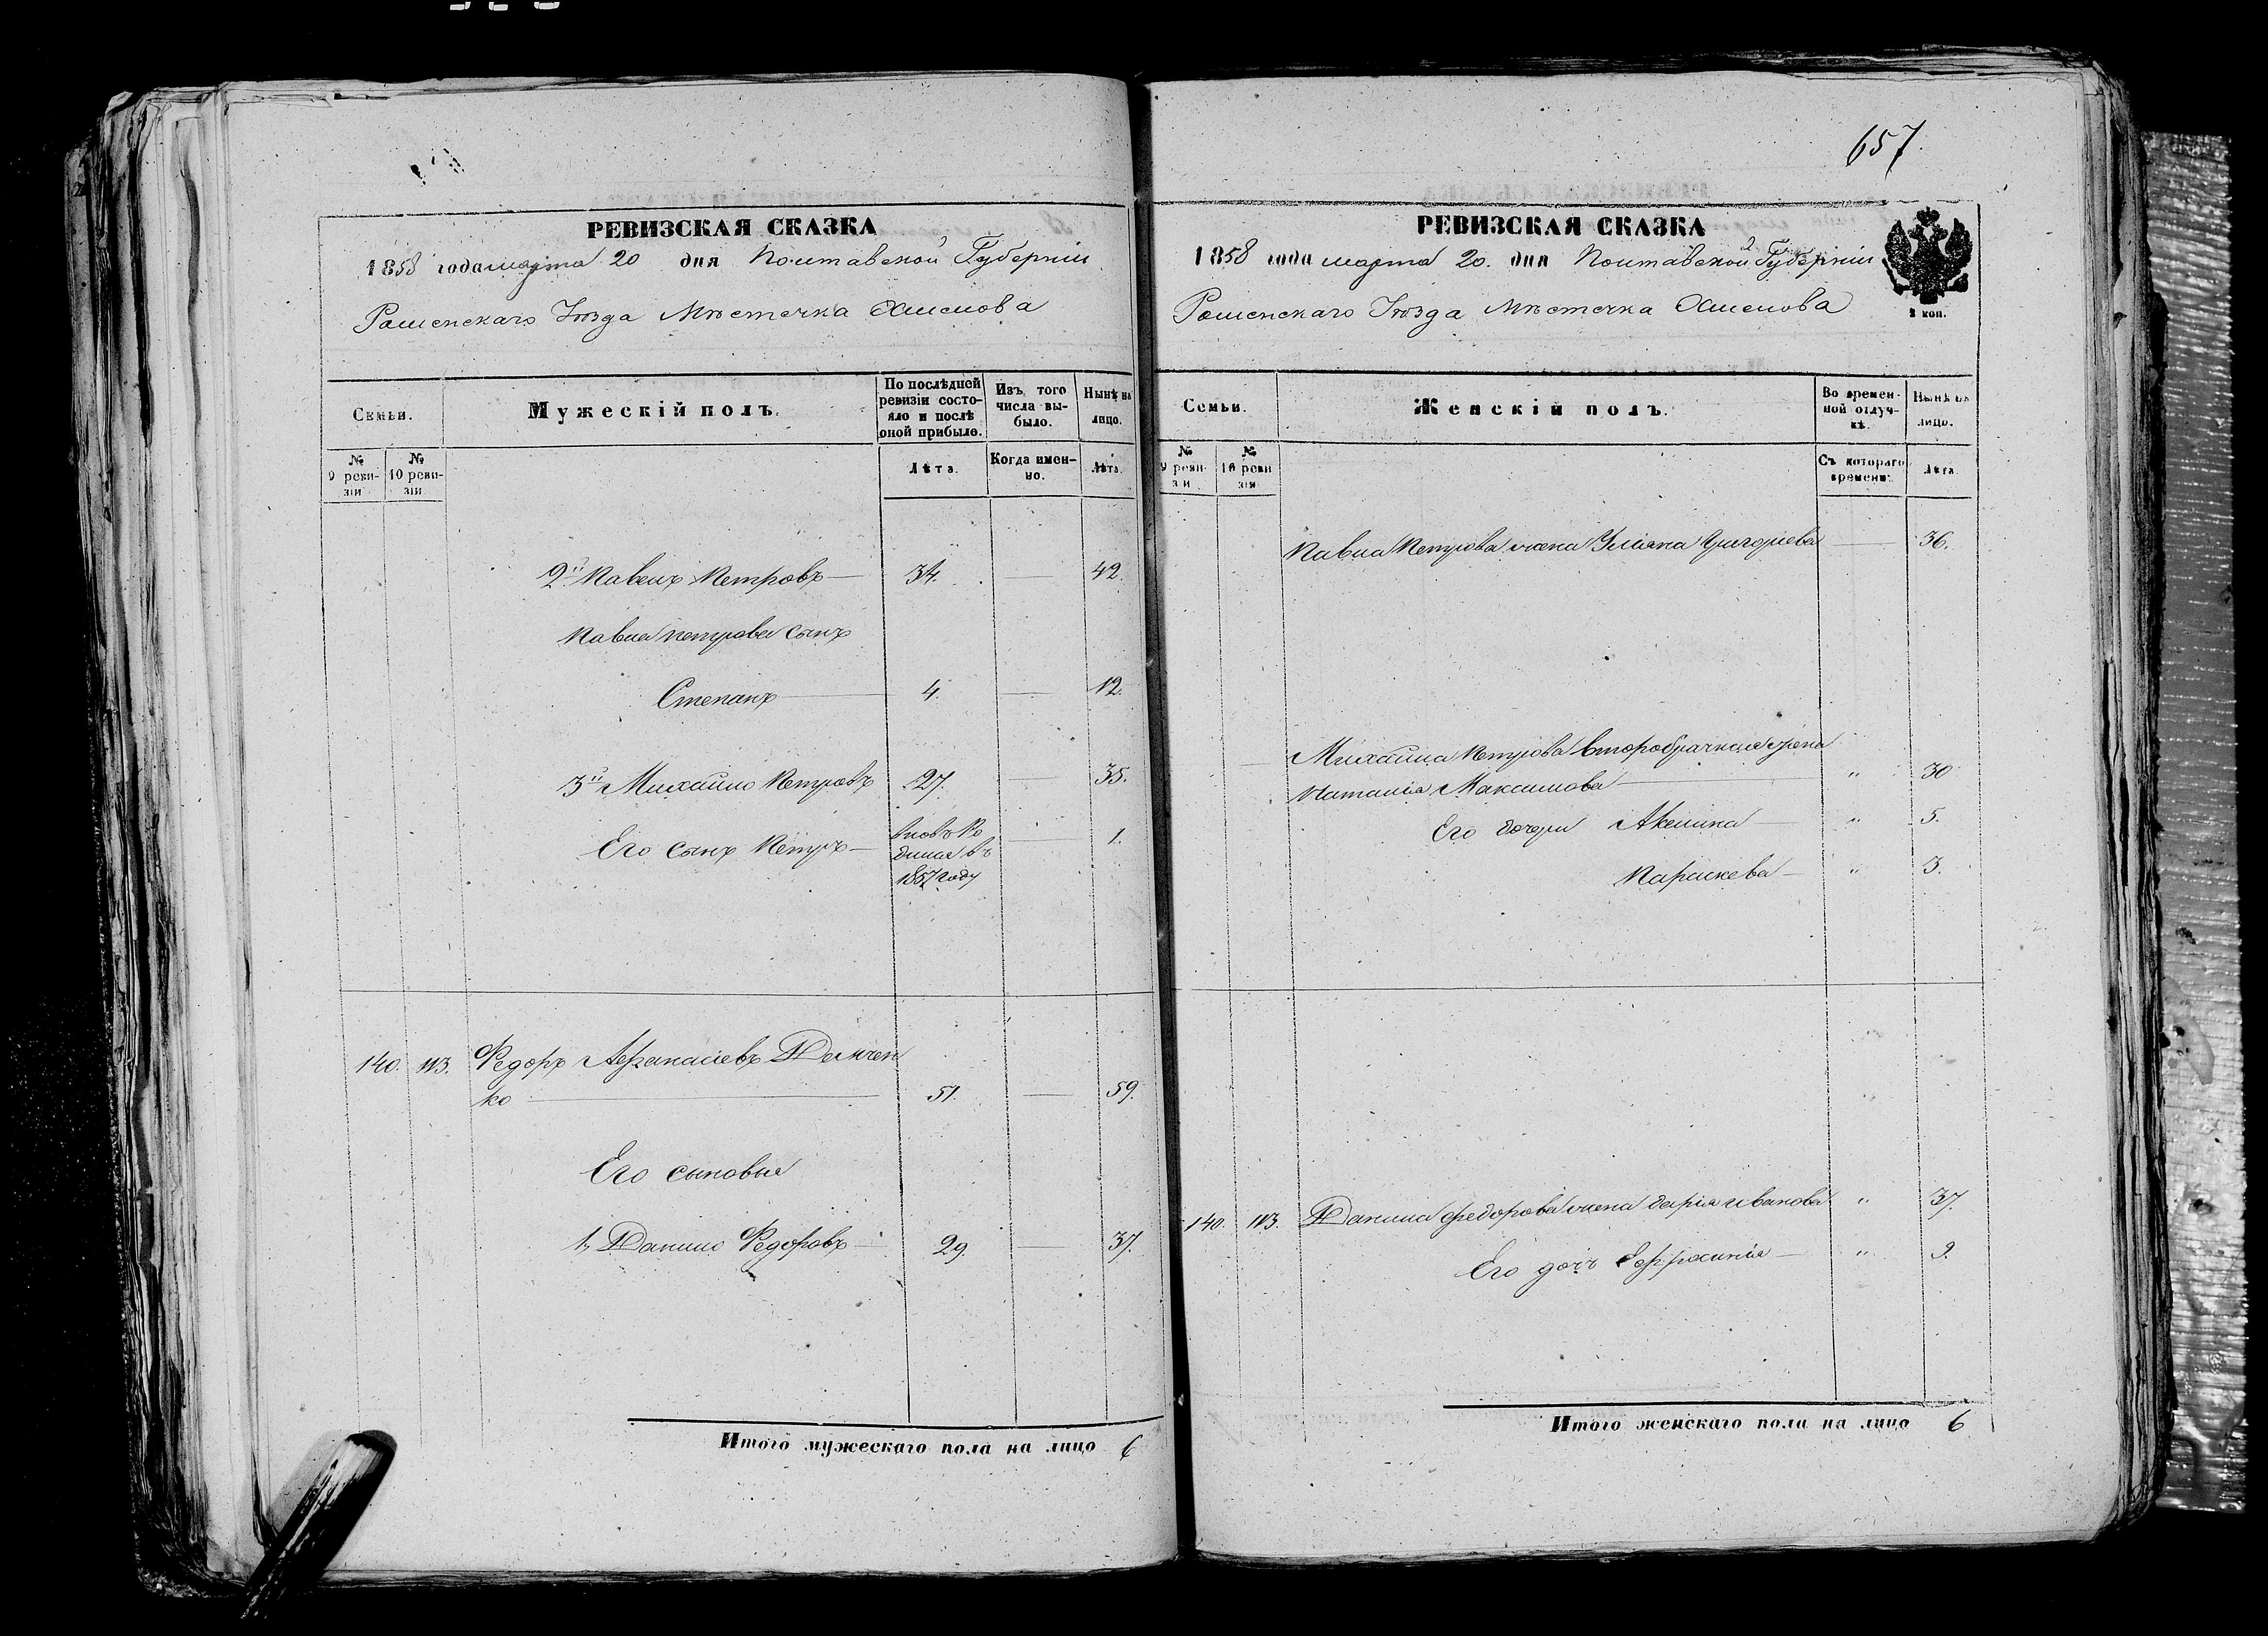 657.
РЕВИЗСКАЯ СКАЗКА
1858 года марта 20 дня Полтавской Губерніи
Роменскаго Уѣзда Мѣстечка Хмелова
Семьи.
Мужескій полъ.
По послѣдней ревизіи состояло и послѣ оной прибыло.
Изъ того числа выбыло.
Нынѣ на лицо.
№ 9 ревизіи
№ 10 ревизіи
Лѣта.
Когда именно.
Лѣта.
2й Павелъ Петровъ — 34. 42.
Павла Петрова сынъ
Степанъ — 4. — 12.
3й Михайло Петровъ 27. — 35.
Его сынъ Петръ — вновь Ро — 1.
дился въ
1857 году
140. 113. Федоръ Афанасіевъ Демчен
ко — 51. — 59.
Его сыновья
1, Данило Федоровъ — 29. — 37.
Итого мужескаго пола на лицо 6
РЕВИЗСКАЯ СКАЗКА
1858 года марта 20. дня Полтавской Губерніи
Роменскаго Уѣзда Мѣстечка Хмелова
2 коп.
Семьи.
Женскій полъ.
Во временной отлучкѣ.
Нынѣ на лицо.
№ 9 ревизіи
№ 10 ревизіи
Съ котораго времени.
Лѣта.
Павла Петрова жена Уліяна Григоріева — 36.
Михайла Петрова второбрачная жена
Наталія Максимова — " 30
Его дочери Акелина — " 5.
Параскева — " 3.
140. 113. Данила Федорова жена Дарія Иванова " 37.
Его дочь Ефросинія — " 9.
Итого женскаго пола на лицо 6